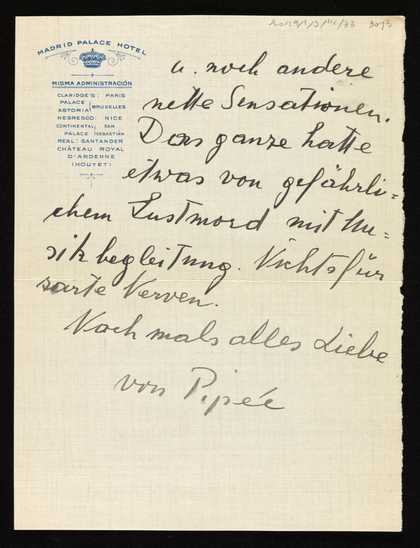 MADRID PALACE HOTEL
MISMA ADMINISTRACIÓN
CLARIDGE'S: PARIS
PALACE
ASTORIA } BRUXELLES
NEGRESCO: NICE
CONTINENTAL; SAN
PALACE SEBASTIÁN
REAL: SANTANDER
CHÂTEAU ROYAL
D'ARDENNE
(HOUYET)
u. noch andere
nette Sensationen.
Das ganze hatte
etwas von gefährli=
chem Lustmord mit Mu=
sikbegleitung. Nichts für
zarte Nerven.
Nochmals alles Liebe
von Pipée